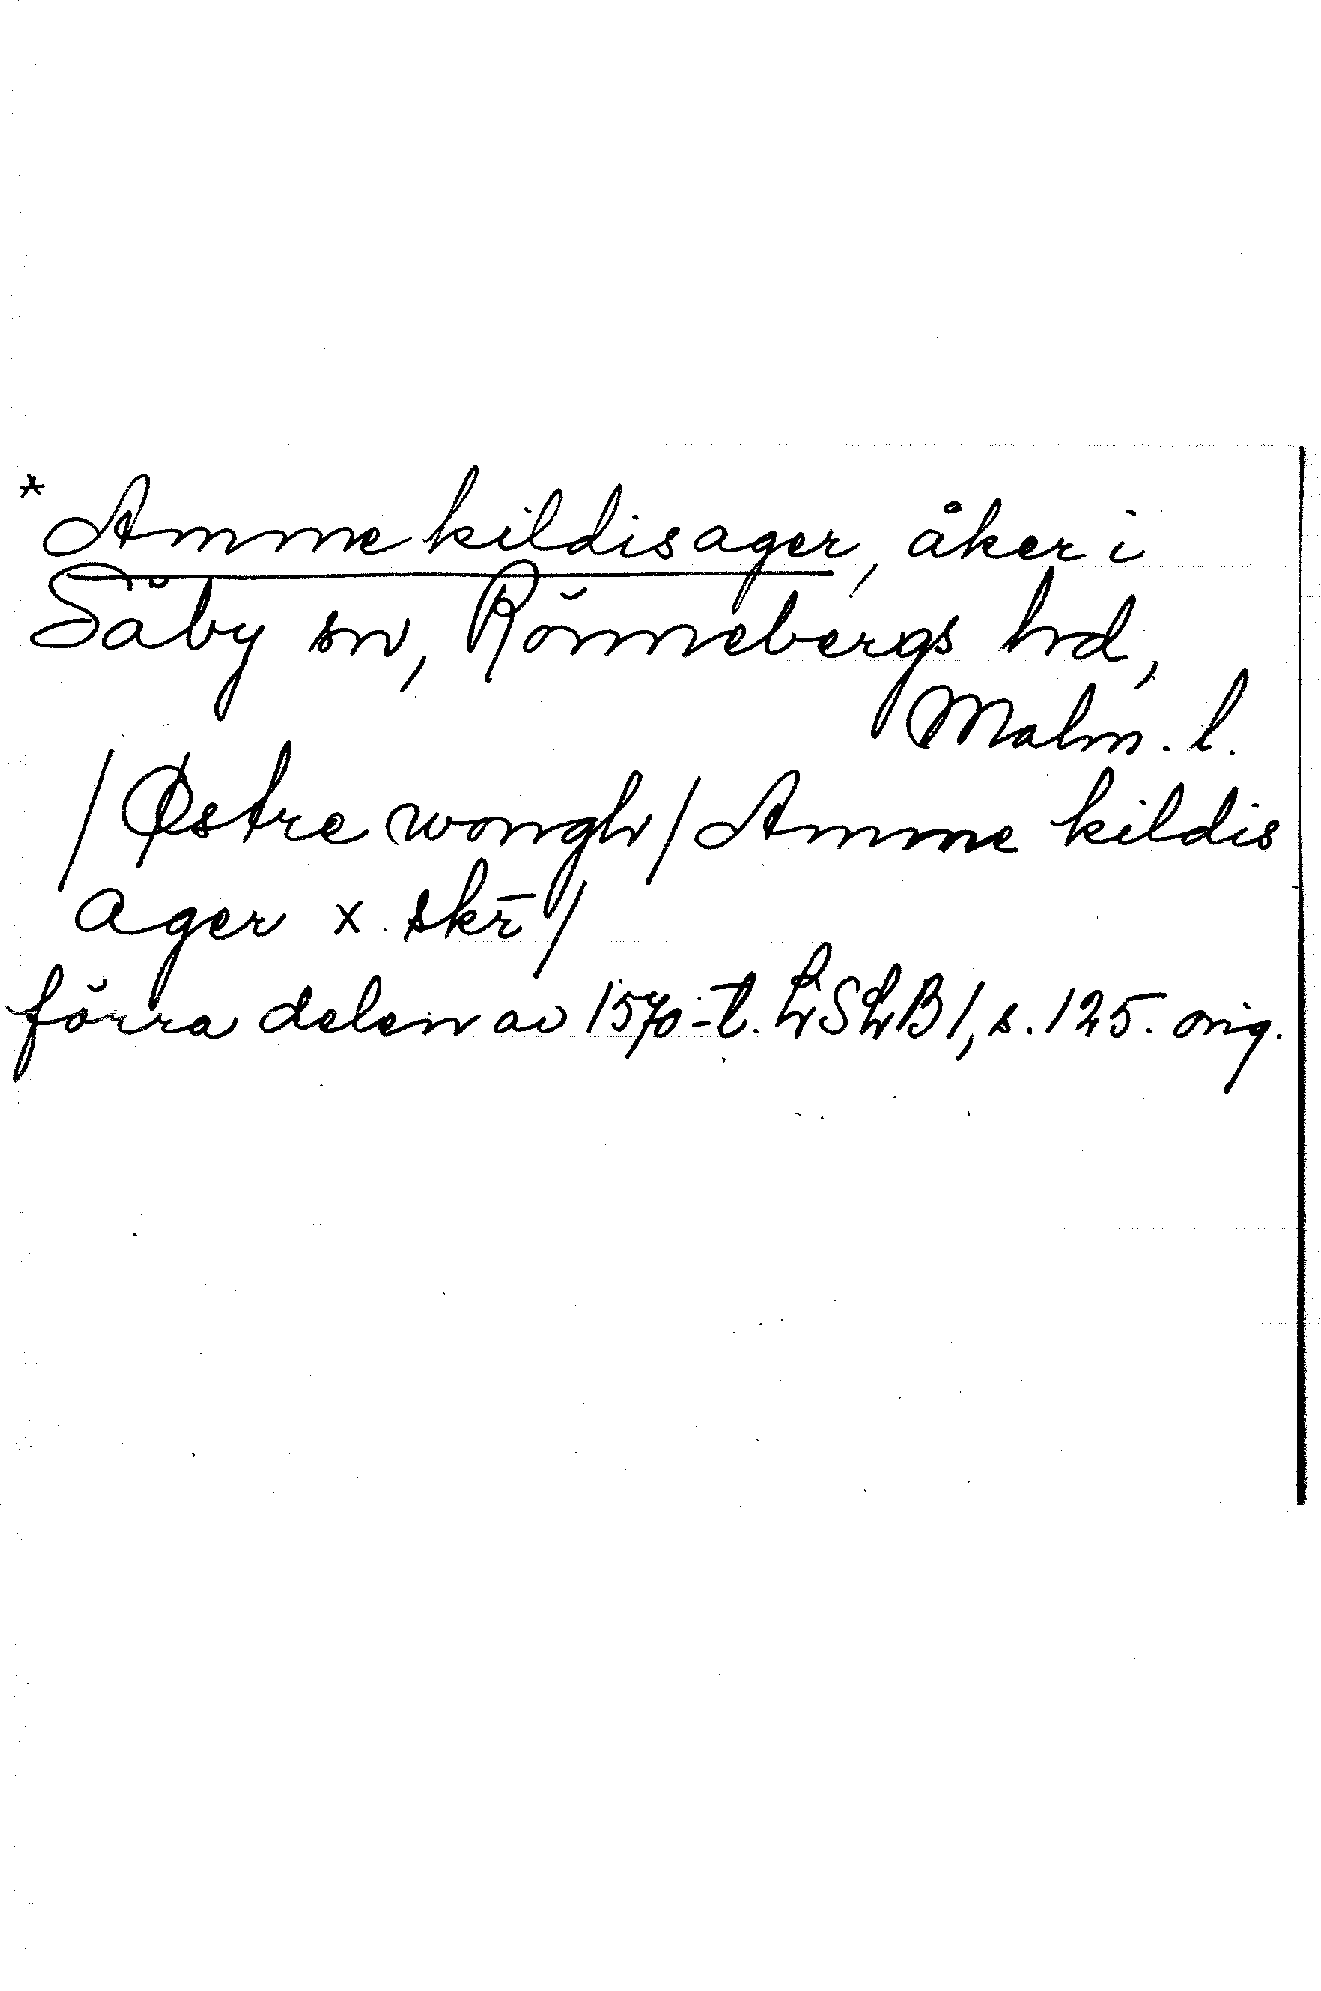 *Ammekildisager, åker i
Säby sn, Rönnebergs hd,
Malm. l.
/Østre wongh/Amme kildis
Ager x skr̄/
förra delen av 1570-t. LSLB 1, s. 125. orig.